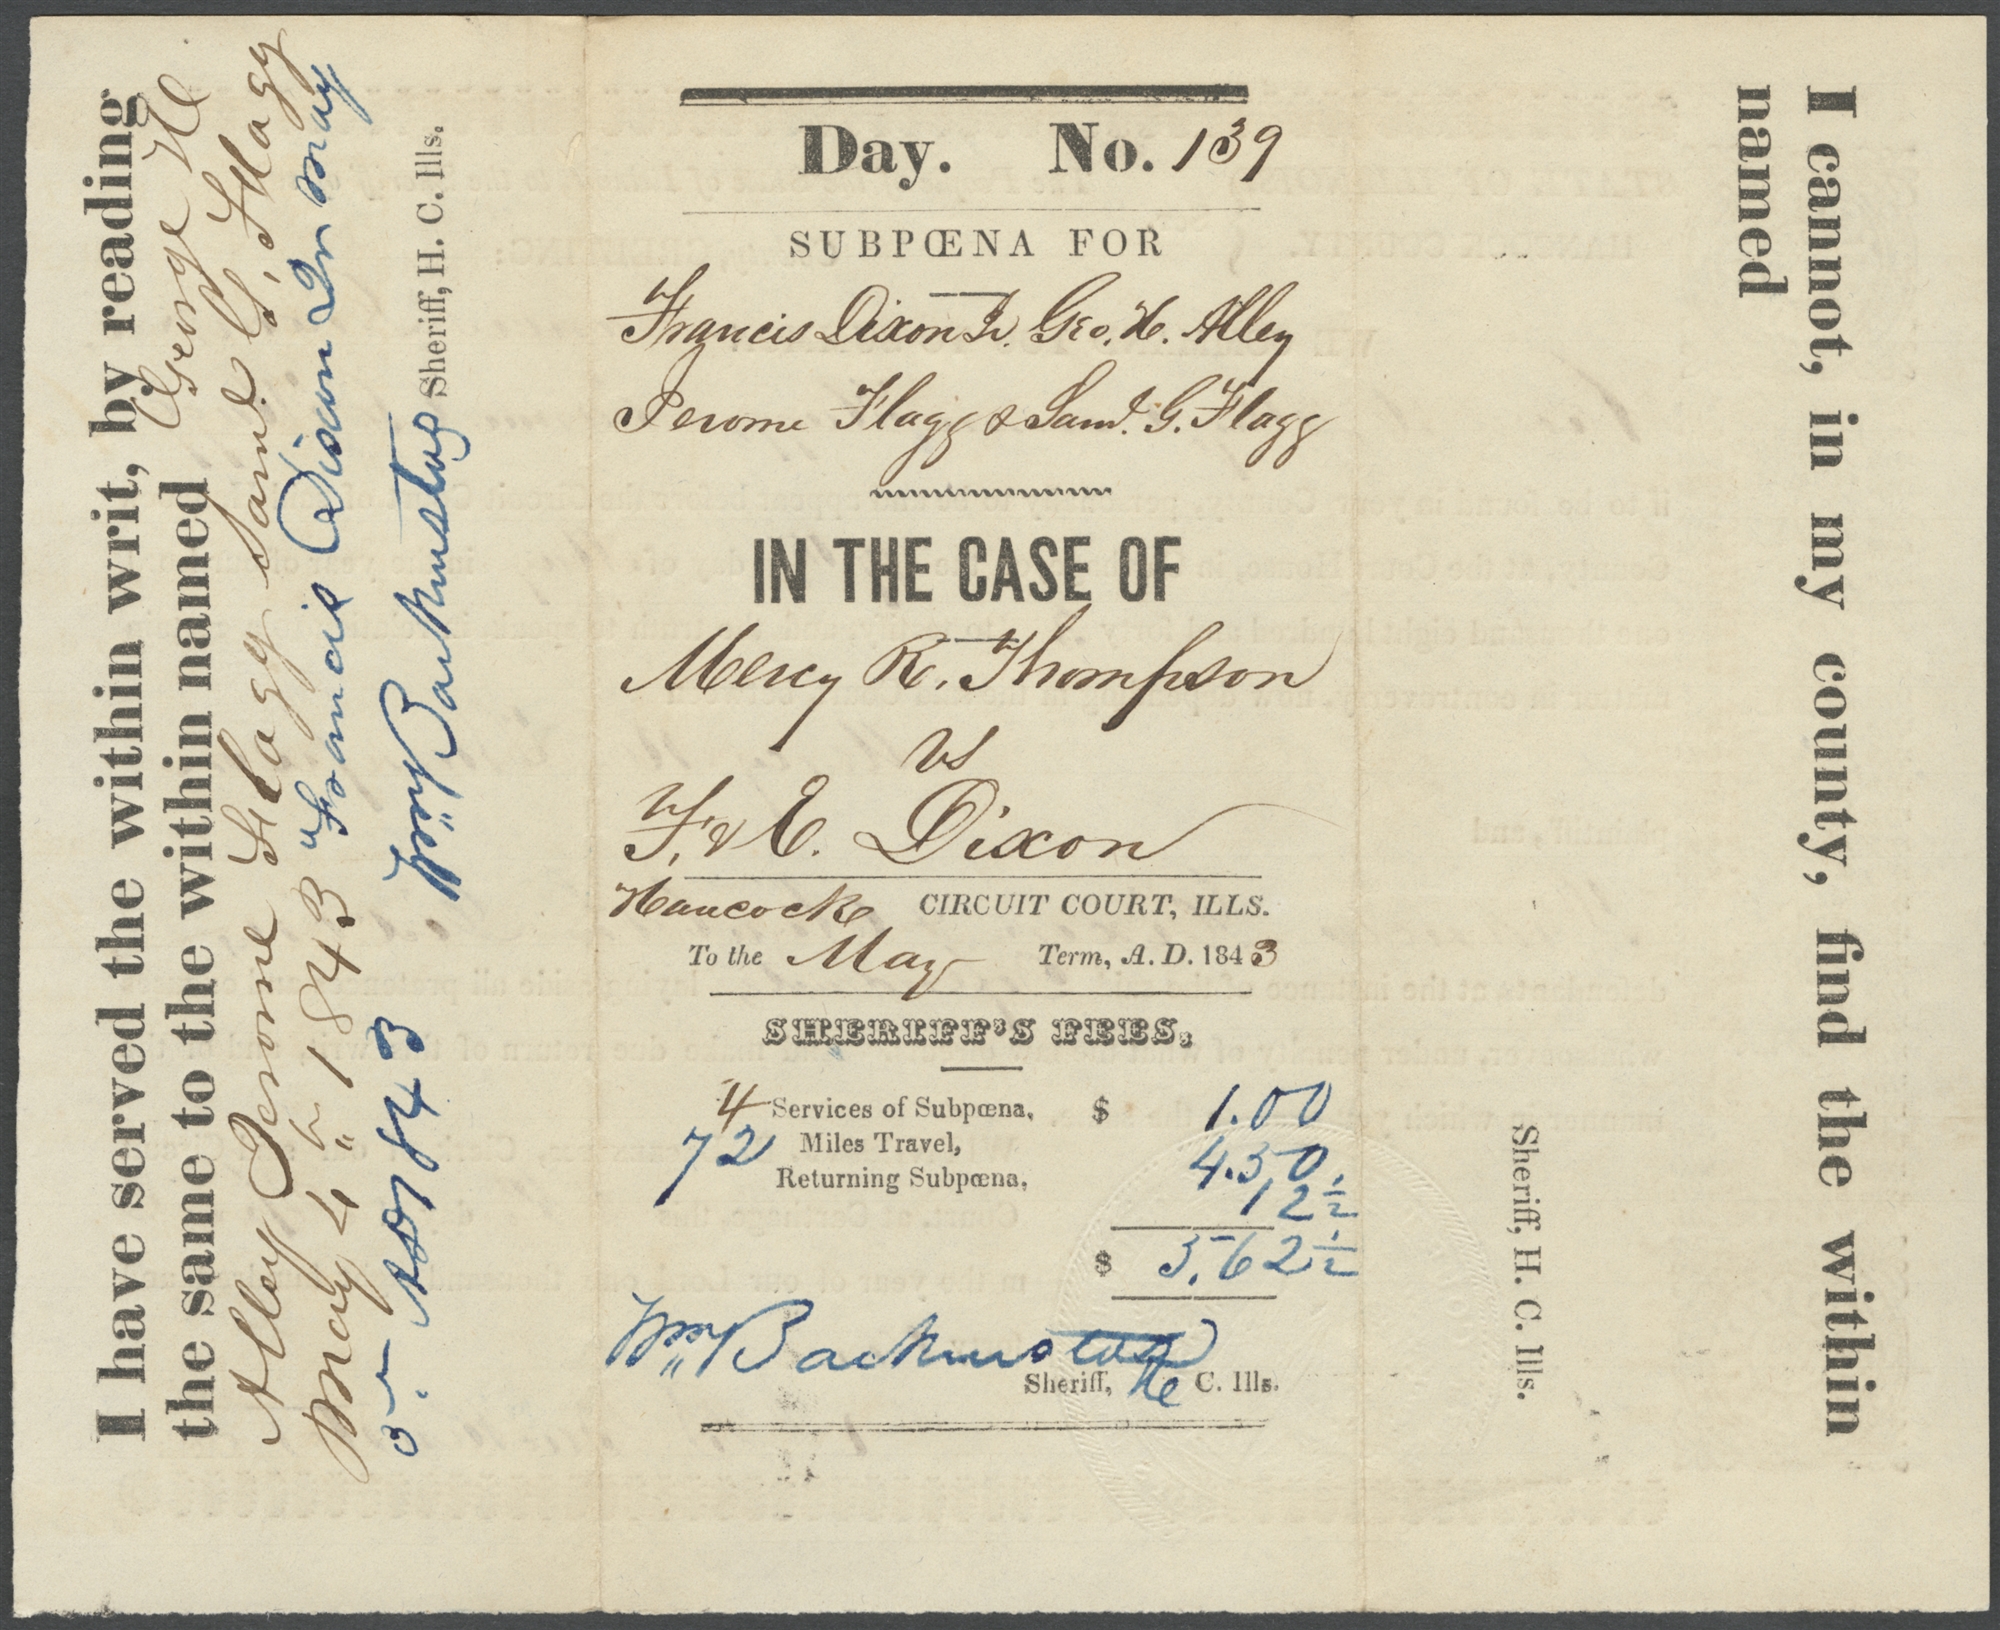 I have served the within writ, by reading
the same to the within named George H
Alley Jerome Flagg Saml G. Flagg
May 4th 1843 Francis Dixon Jr may
5- 1843 Wm Backenstos Sheriff, H. C. Ills.
Day. No. 139
SUBPŒNA FOR
Francis Dixon Jr. Geo. H. Alley
Jerome Flagg & Saml. G. Flagg
IN THE CASE OF
Mercy R. Thompson
vs
F. & E. Dixon
Hancock CIRCUIT COURT, ILLS.
To the May Term, A. D. 1843
SHERIFF'S FEES.
4 Services of Subpœna, $ 1.00
72 Miles Travel, 4.50
Returning Subpœna, 12½
$ 5.62½
Wm Backenstos
Sheriff, H C. Ills.
I cannot, in my county, find the within
named
Sheriff, H. C. Ills.